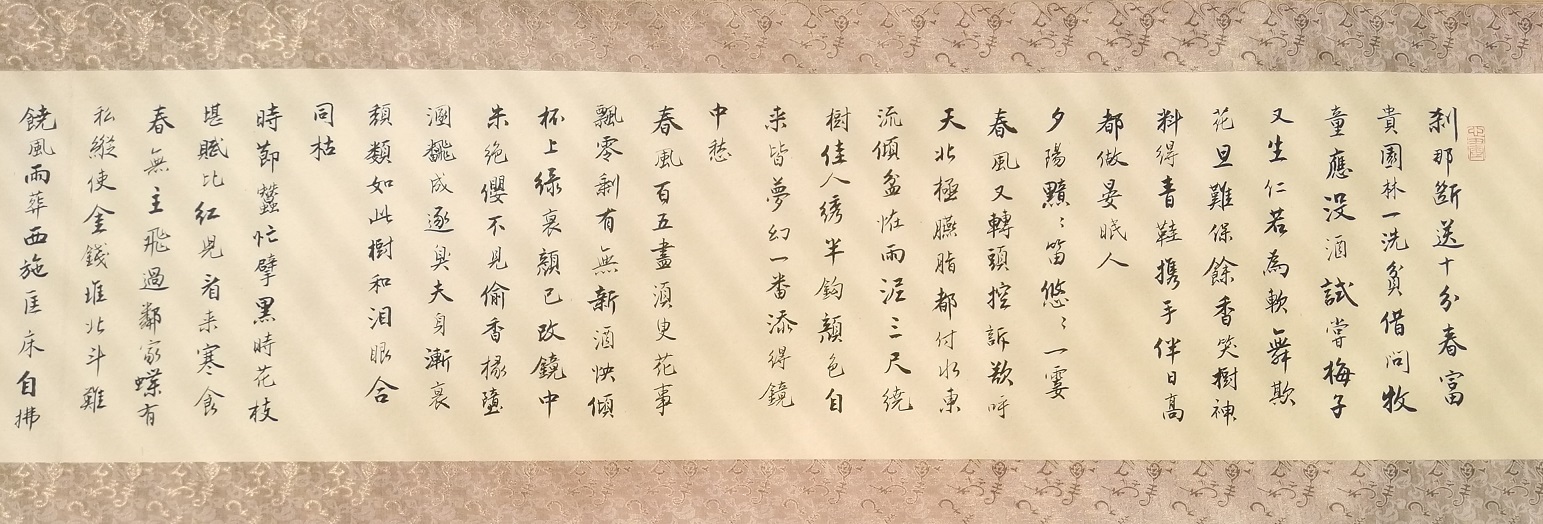 刹那断送十分春富
貴園林一洗貧借问牧
童應没酒試嘗梅子
又生仁若為軟舞欺
花旦難保餘香笑樹神
料得青鞋携手伴日高
都做晏眠人
夕陽黯〻笛悠〻一霎
春風又轉頭控訴欲呼
天北極臙脂都付水東
流傾盆怪雨泥三尺繞
樹佳人綉半鈎顔色自
来皆夢幻一番添得鏡
中愁
春風百五盡須臾花事
飄零剩有無新酒怏傾
杯上绿衰顔已改鏡中
朱绝纓不見偷香掾墮
溷翻成逐臭夫身漸衰
頹類如此樹和泪眼合
同枯
時節蠶忙擘黑時花枝
堪賦比红兒看来寒食
春無主飛過鄰家蝶有
私縱使金錢堆北斗難
饒風雨葬西施匡床自拂